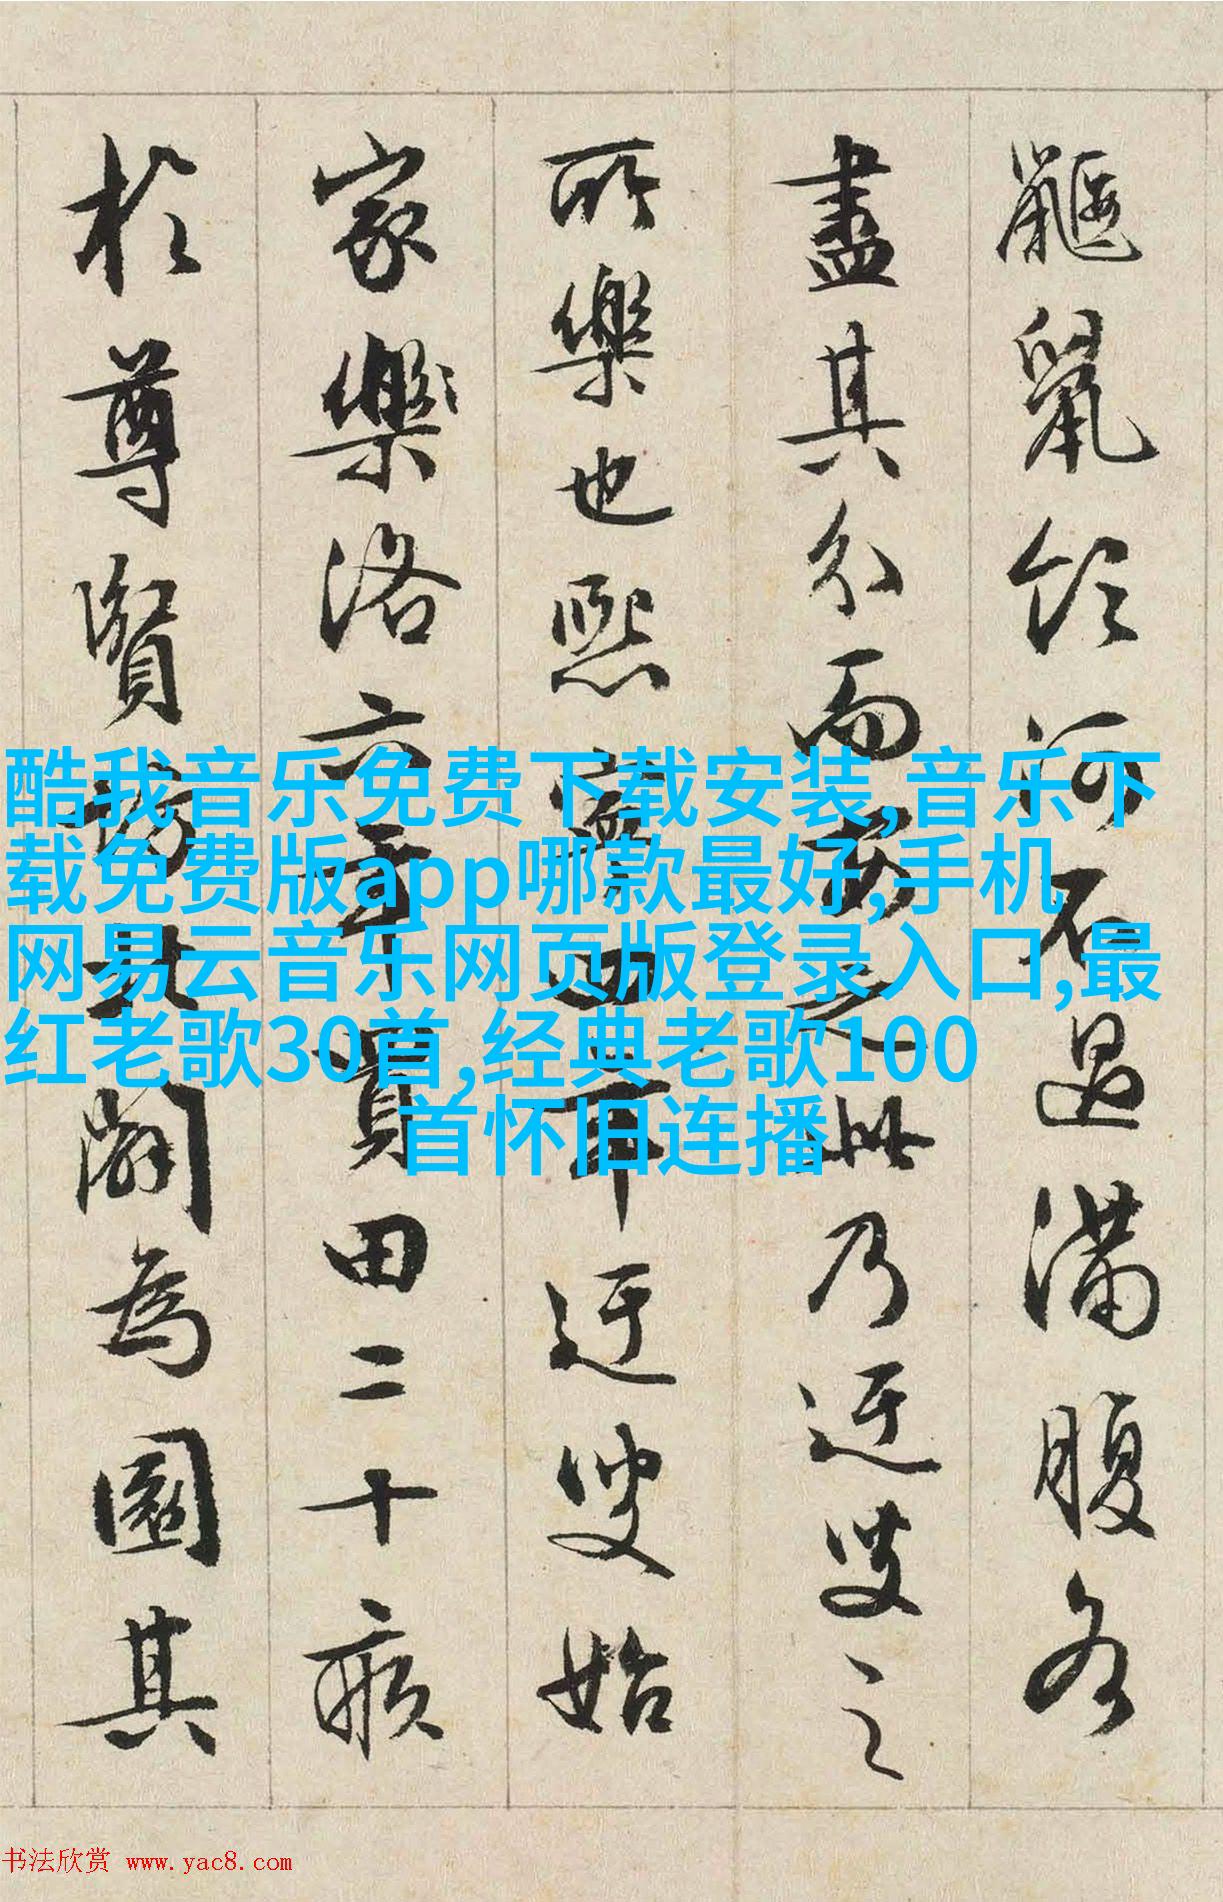 鼴鼠飲河不過滿腹各
盡其分而安之此乃迂叟之
所樂也熙寧四年迂叟始
家樂洛六年買田二十畝
於尊賢坊北闢為園其
酷我音乐免费下载安装,音乐下
载免费版app哪款最好,手机
网易云音乐网页版登录入口,最
红老歌30首,经典老歌100
首怀旧连播
书法欣赏 www.yac8.com